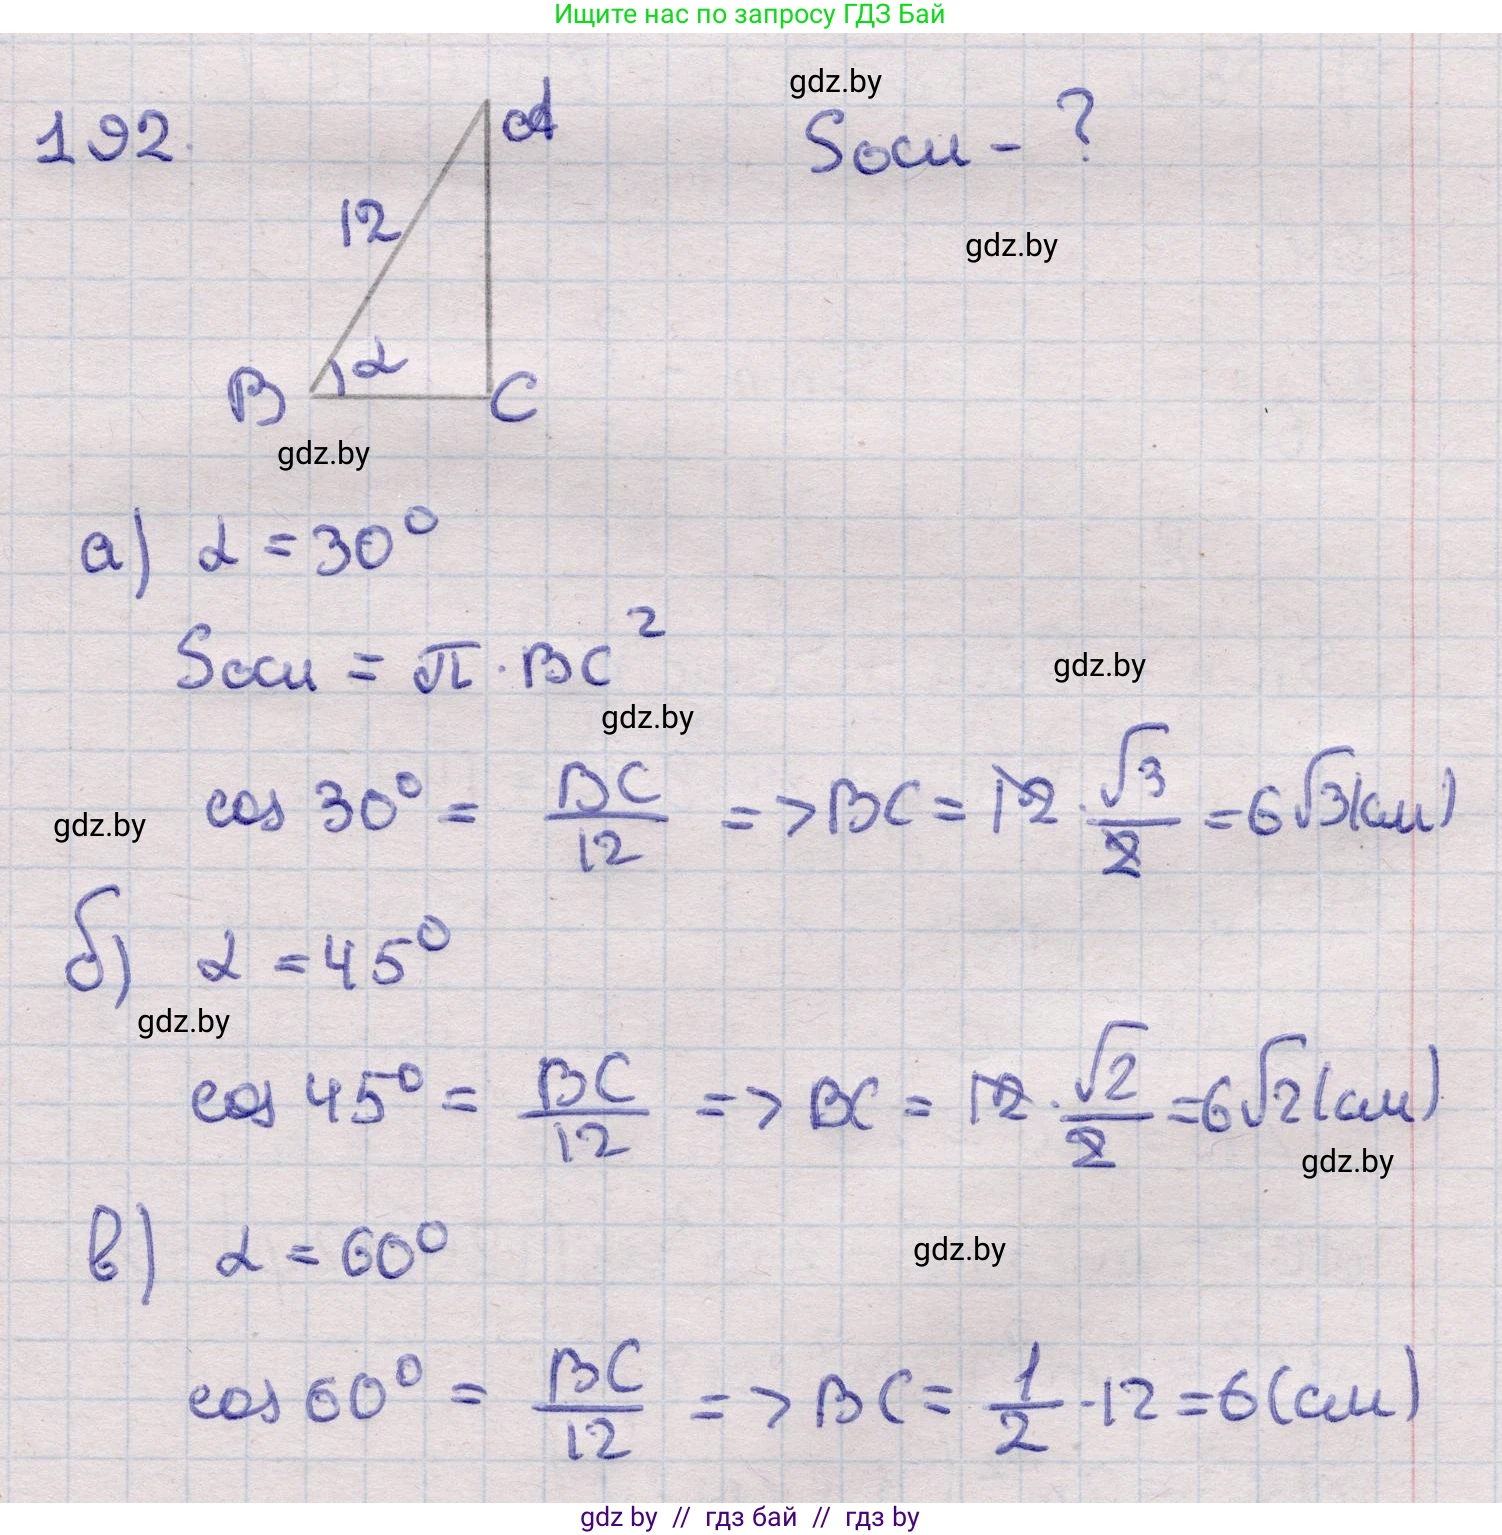 Ищите нас по запросу ГДЗ Бай
gdz.by
192.
A
Sосн - ?
12
gdz.by
α
B
C
gdz.by
а) α = 30°
Sосн = π · BC²
gdz.by
gdz.by
cos 30° = BC/12 => BC = 12 · √3/2 = 6√3(см)
gdz.by
б) α = 45°
gdz.by
cos 45° = BC/12 => BC = 12 · √2/2 = 6√2(см)
gdz.by
в) α = 60°
gdz.by
cos 60° = BC/12 => BC = 1/2 · 12 = 6(см)
gdz by // гдз бай // гдз by